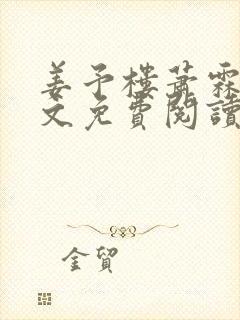 姜予樓蕭霖
文免費閱讀
金貿